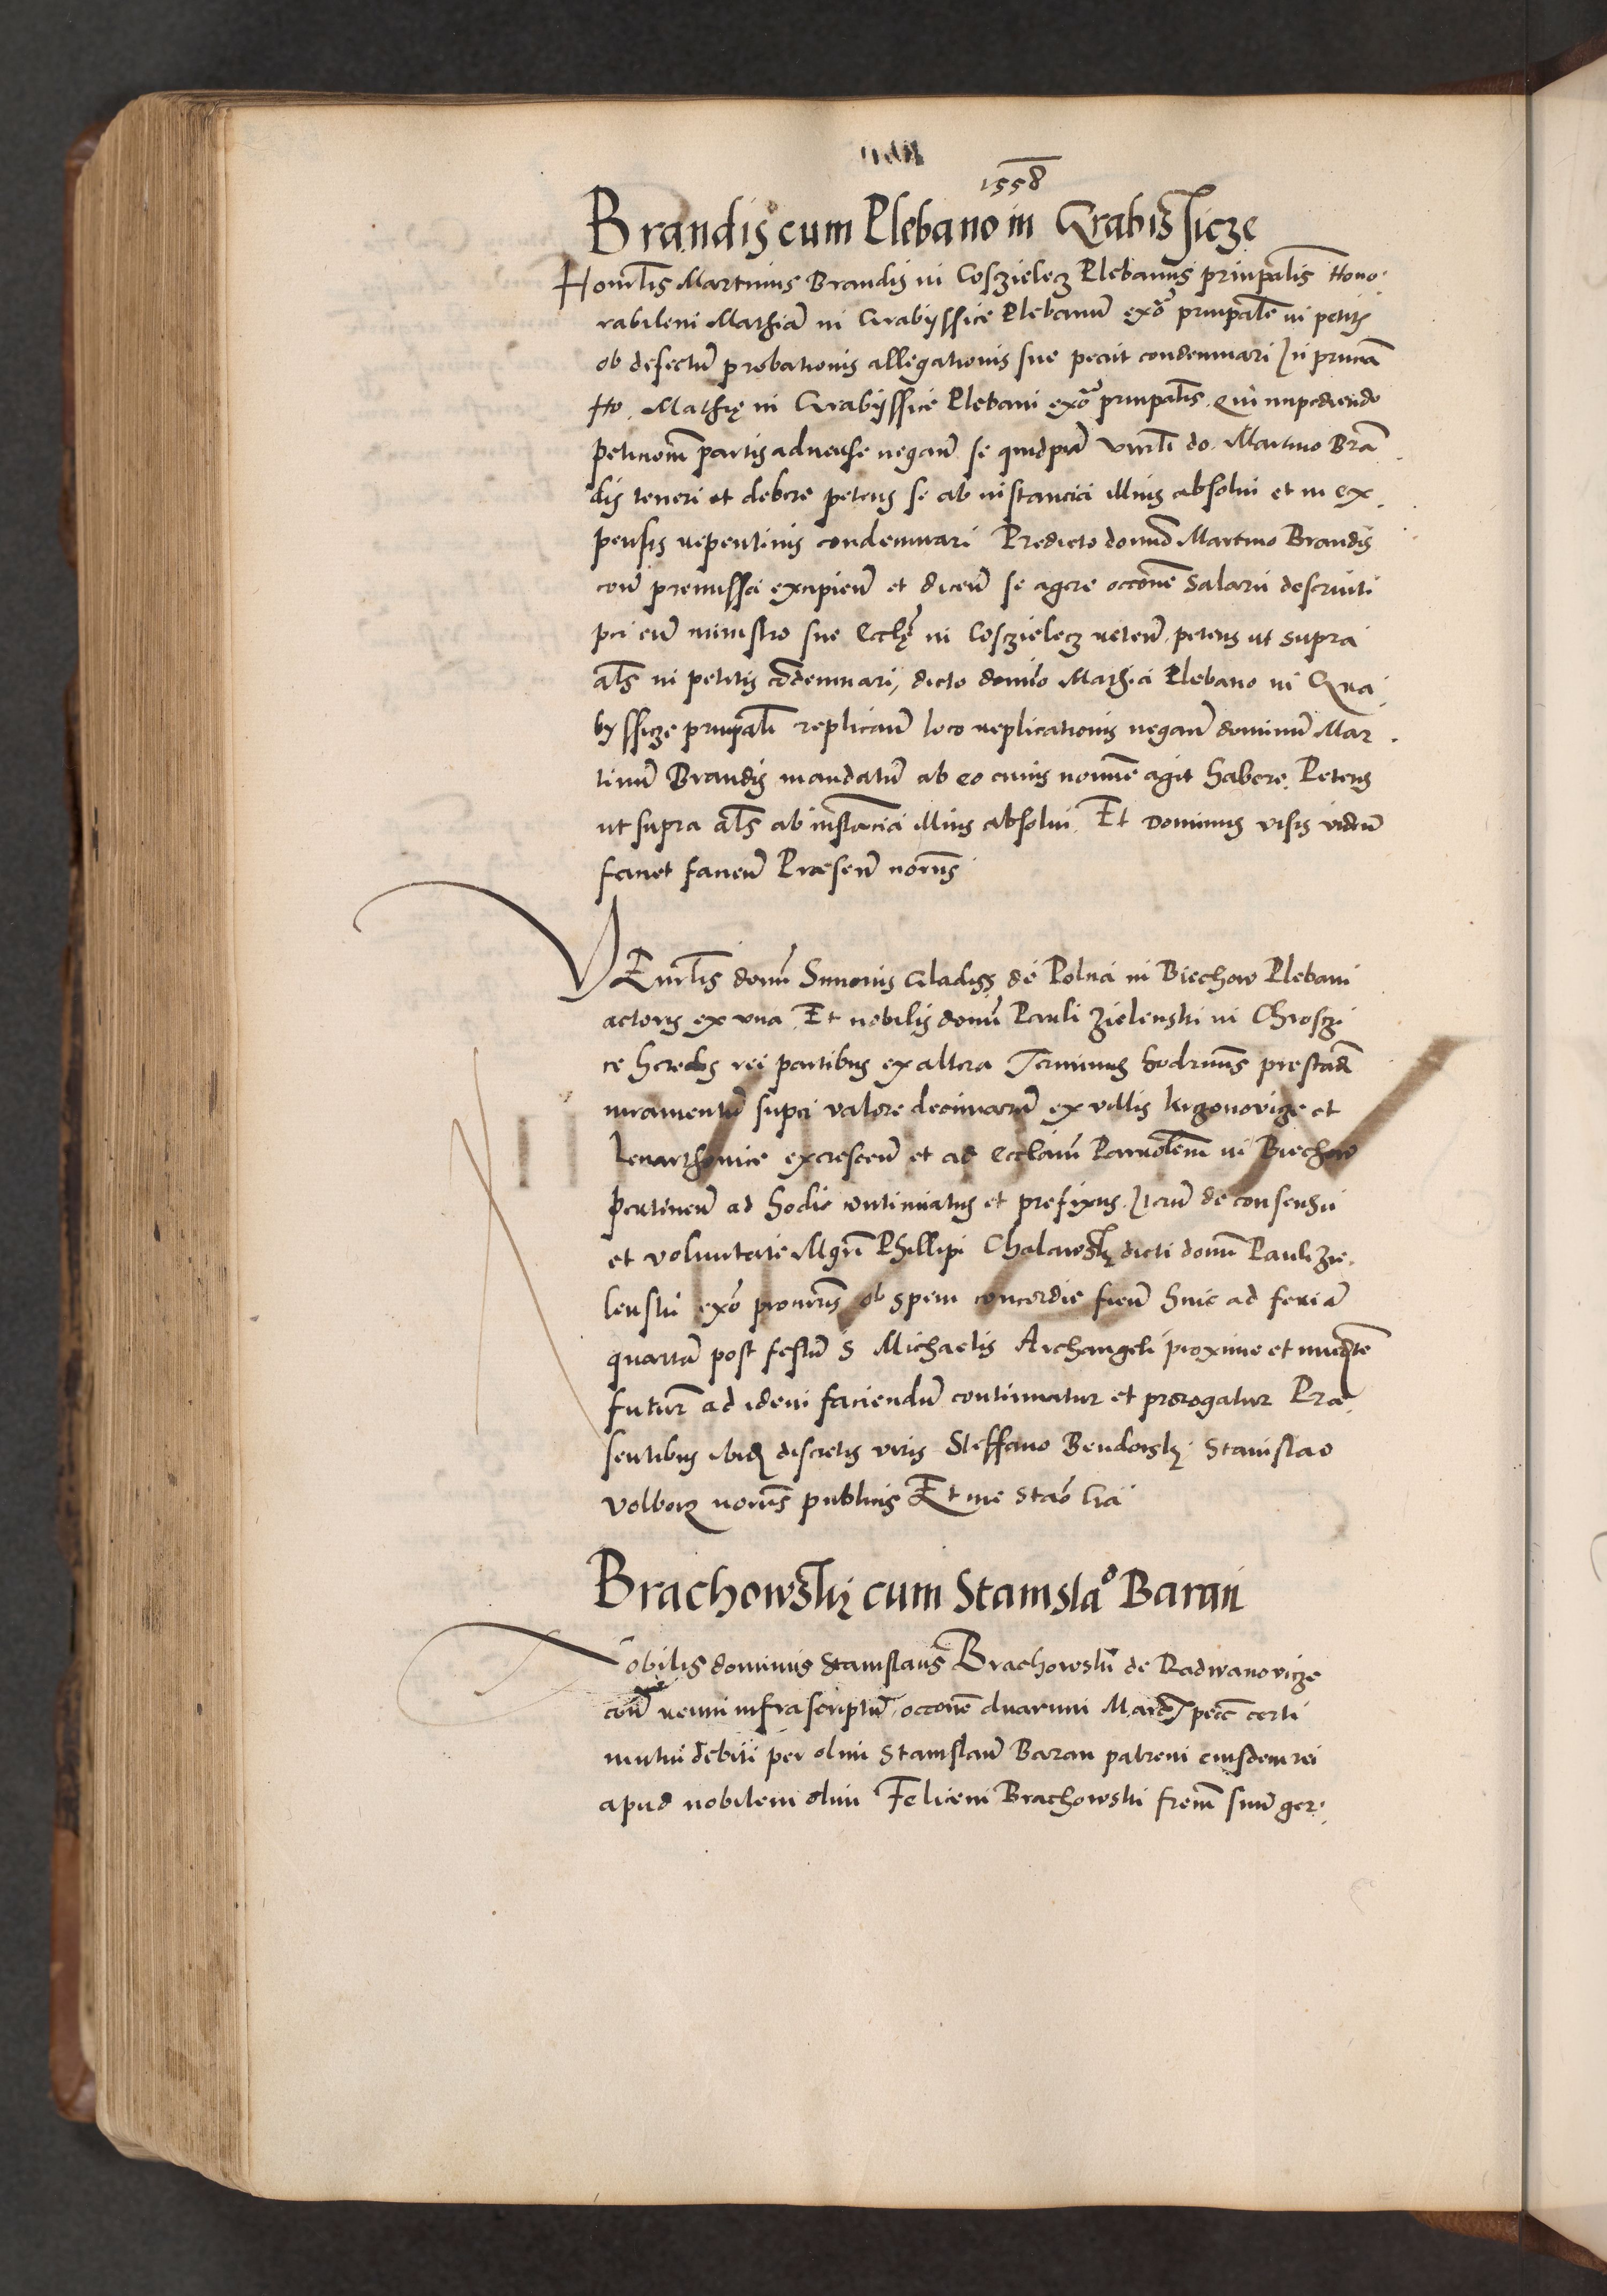 1558
Brandis cum Plebano in Grabissicze
Honorlis Martinus Brandis in Cosczielecz Plebanus prinpalis Hono
rabilem Mathiā in Grabyssice Plebanū exō prinpalē in petitis
ob defectū probationis allegationis sue petiit condemnari In pncia
Ho. Mathię in Grabyssice Plebani exō prinpalis. Qui impediendo
petitionem partis adverse negavit se quidpiā venrli do. Martino Brā
dis teneri et debere petens se ab instancia illius absolvi et in ex
pensis repentinis condemnari Predicto domino Martino Brandis
con premissa excipien et dicen se agere occone salarii deserviti
per eū ministro sue Ecclę in Cosczielecz reten. petens ut supra
als in petitis cōdemnari, dicto domino Mathia Plebano in Gra
byssicze prinpali replican loco replicationis negan dominū Mar
tinū Brandis mandatū ab eo cuius nomine agit habere. Petens
ut supra als ab instancia illius absolvi. Et Dominus visis viden
favet faven Praesen noriis
Venrlis domi Simonis Gladiss de Polna in Biechow Plebani
actoris ex una Et nobilis domi Pauli Zielenski in Chrosczi
ce heredis rei partibus ex altera Terminus hodrnus prestan
iuramentū super valore decimarū ex villis Krzonovicze et
Lenarthovice excrescen et ad Ecclāiam Parrolem in Biechow
pertinen ad hodie continuatus et prefixus. Iterū de consensu
et voluntate Mgri Phillipi Chalawsky dicti domi Pauli Zie
lenski exō procuris ob spem concordie fien hinc ad feriā
quartā post festū S Michaelis Archangeli proxime et immedte
futurā ad idem faciendū continuatur et prorogatur Prae
sentibus ibidē discretis viris Steffano Bendowsky Stanislao
Volborz noriis publicis Et me Stao Gra
Brachowsky cum Stanislao Baran
Nobilis dominus Stanislaus Brachowski de Radwanovicze
con reum infrascriptū occone duarum Marcar pecc certi
mutui debiti per olim Stanislaū Baran patrem eiusdem rei
apud nobilem olim Felicem Brachowski frem suū ger